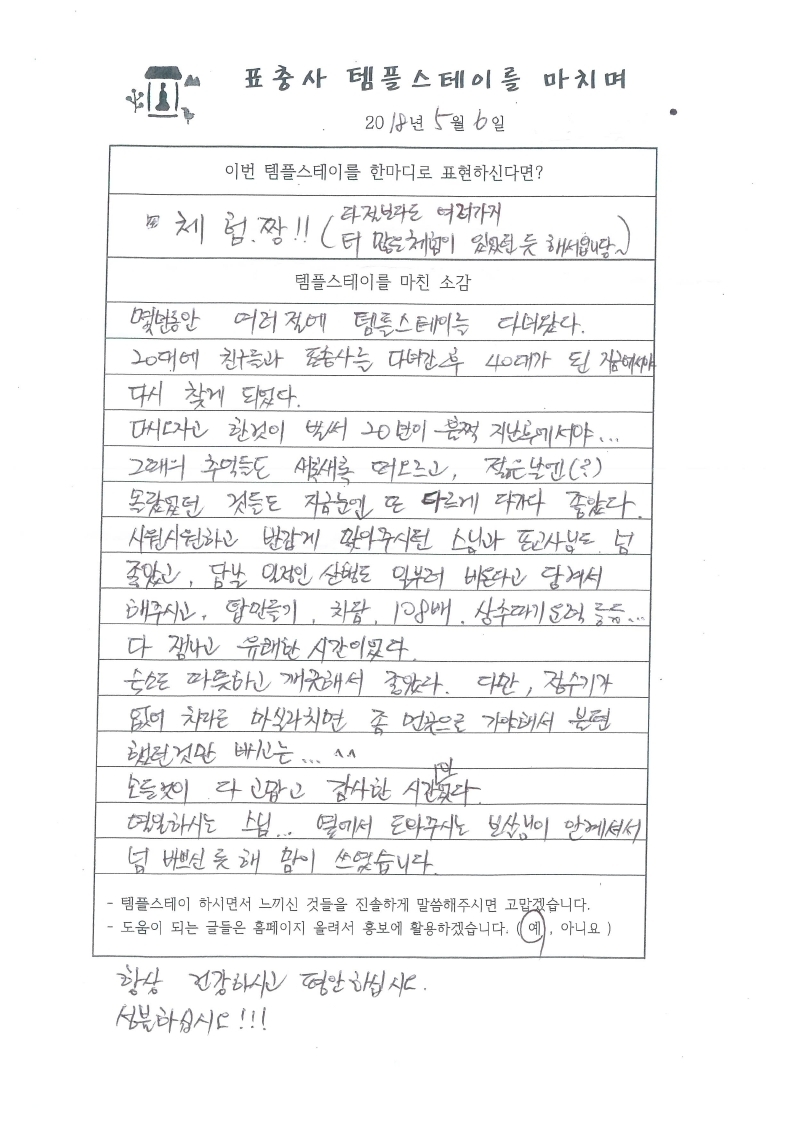 표충사 템플스테이를 마치며
2018년 5월 6일
이번 템플스테이를 한마디로 표현하신다면?
체험.짱!! (타절보다도 여러가지
더 많은 체험이 있었던 듯 해서요~)
템플스테이를 마친 소감
몇년동안 여러절에 템플스테이를 다녀왔다.
20대에 친구들과 표충사를 다녀간후 40대가 된 지금에서야
다시 찾게 되었다.
다시오자고 한것이 벌써 20년이 훌쩍 지난후에서야...
그때의 추억들도 새록새록 떠오르고, 젊은날엔(?)
몰랐었던 것들도 지금눈엔 또 다르게 다가와 좋았다.
시원시원하고 반갑게 맞아주시던 스님과 포교사님도 넘
좋았고, 담날 일정인 산행도 일부러 비온다고 당겨서
해주시고, 합만들기, 차담, 108배, 상추따기운력 등등...
다 잼나고 유쾌한 시간이었다.
숙소도 따뜻하고 깨끗해서 좋았다. 다만, 정수기가
없어 차라도 마실라치면 좀 먼곳으로 가야해서 불편
했던것만 빼고는... ^^
모든것이 다 고맙고 감사한 시간이었다.
열일하시는 스님... 옆에서 도와주시는 보살님이 안계셔서
넘 바쁘신 듯 해 맘이 쓰였습니다.
- 템플스테이 하시면서 느끼신 것들을 진솔하게 말씀해주시면 고맙겠습니다.
- 도움이 되는 글들은 홈페이지 올려서 홍보에 활용하겠습니다. ( 예 , 아니요 )
항상 건강하시고 평안하십시오.
성불하십시오!!!